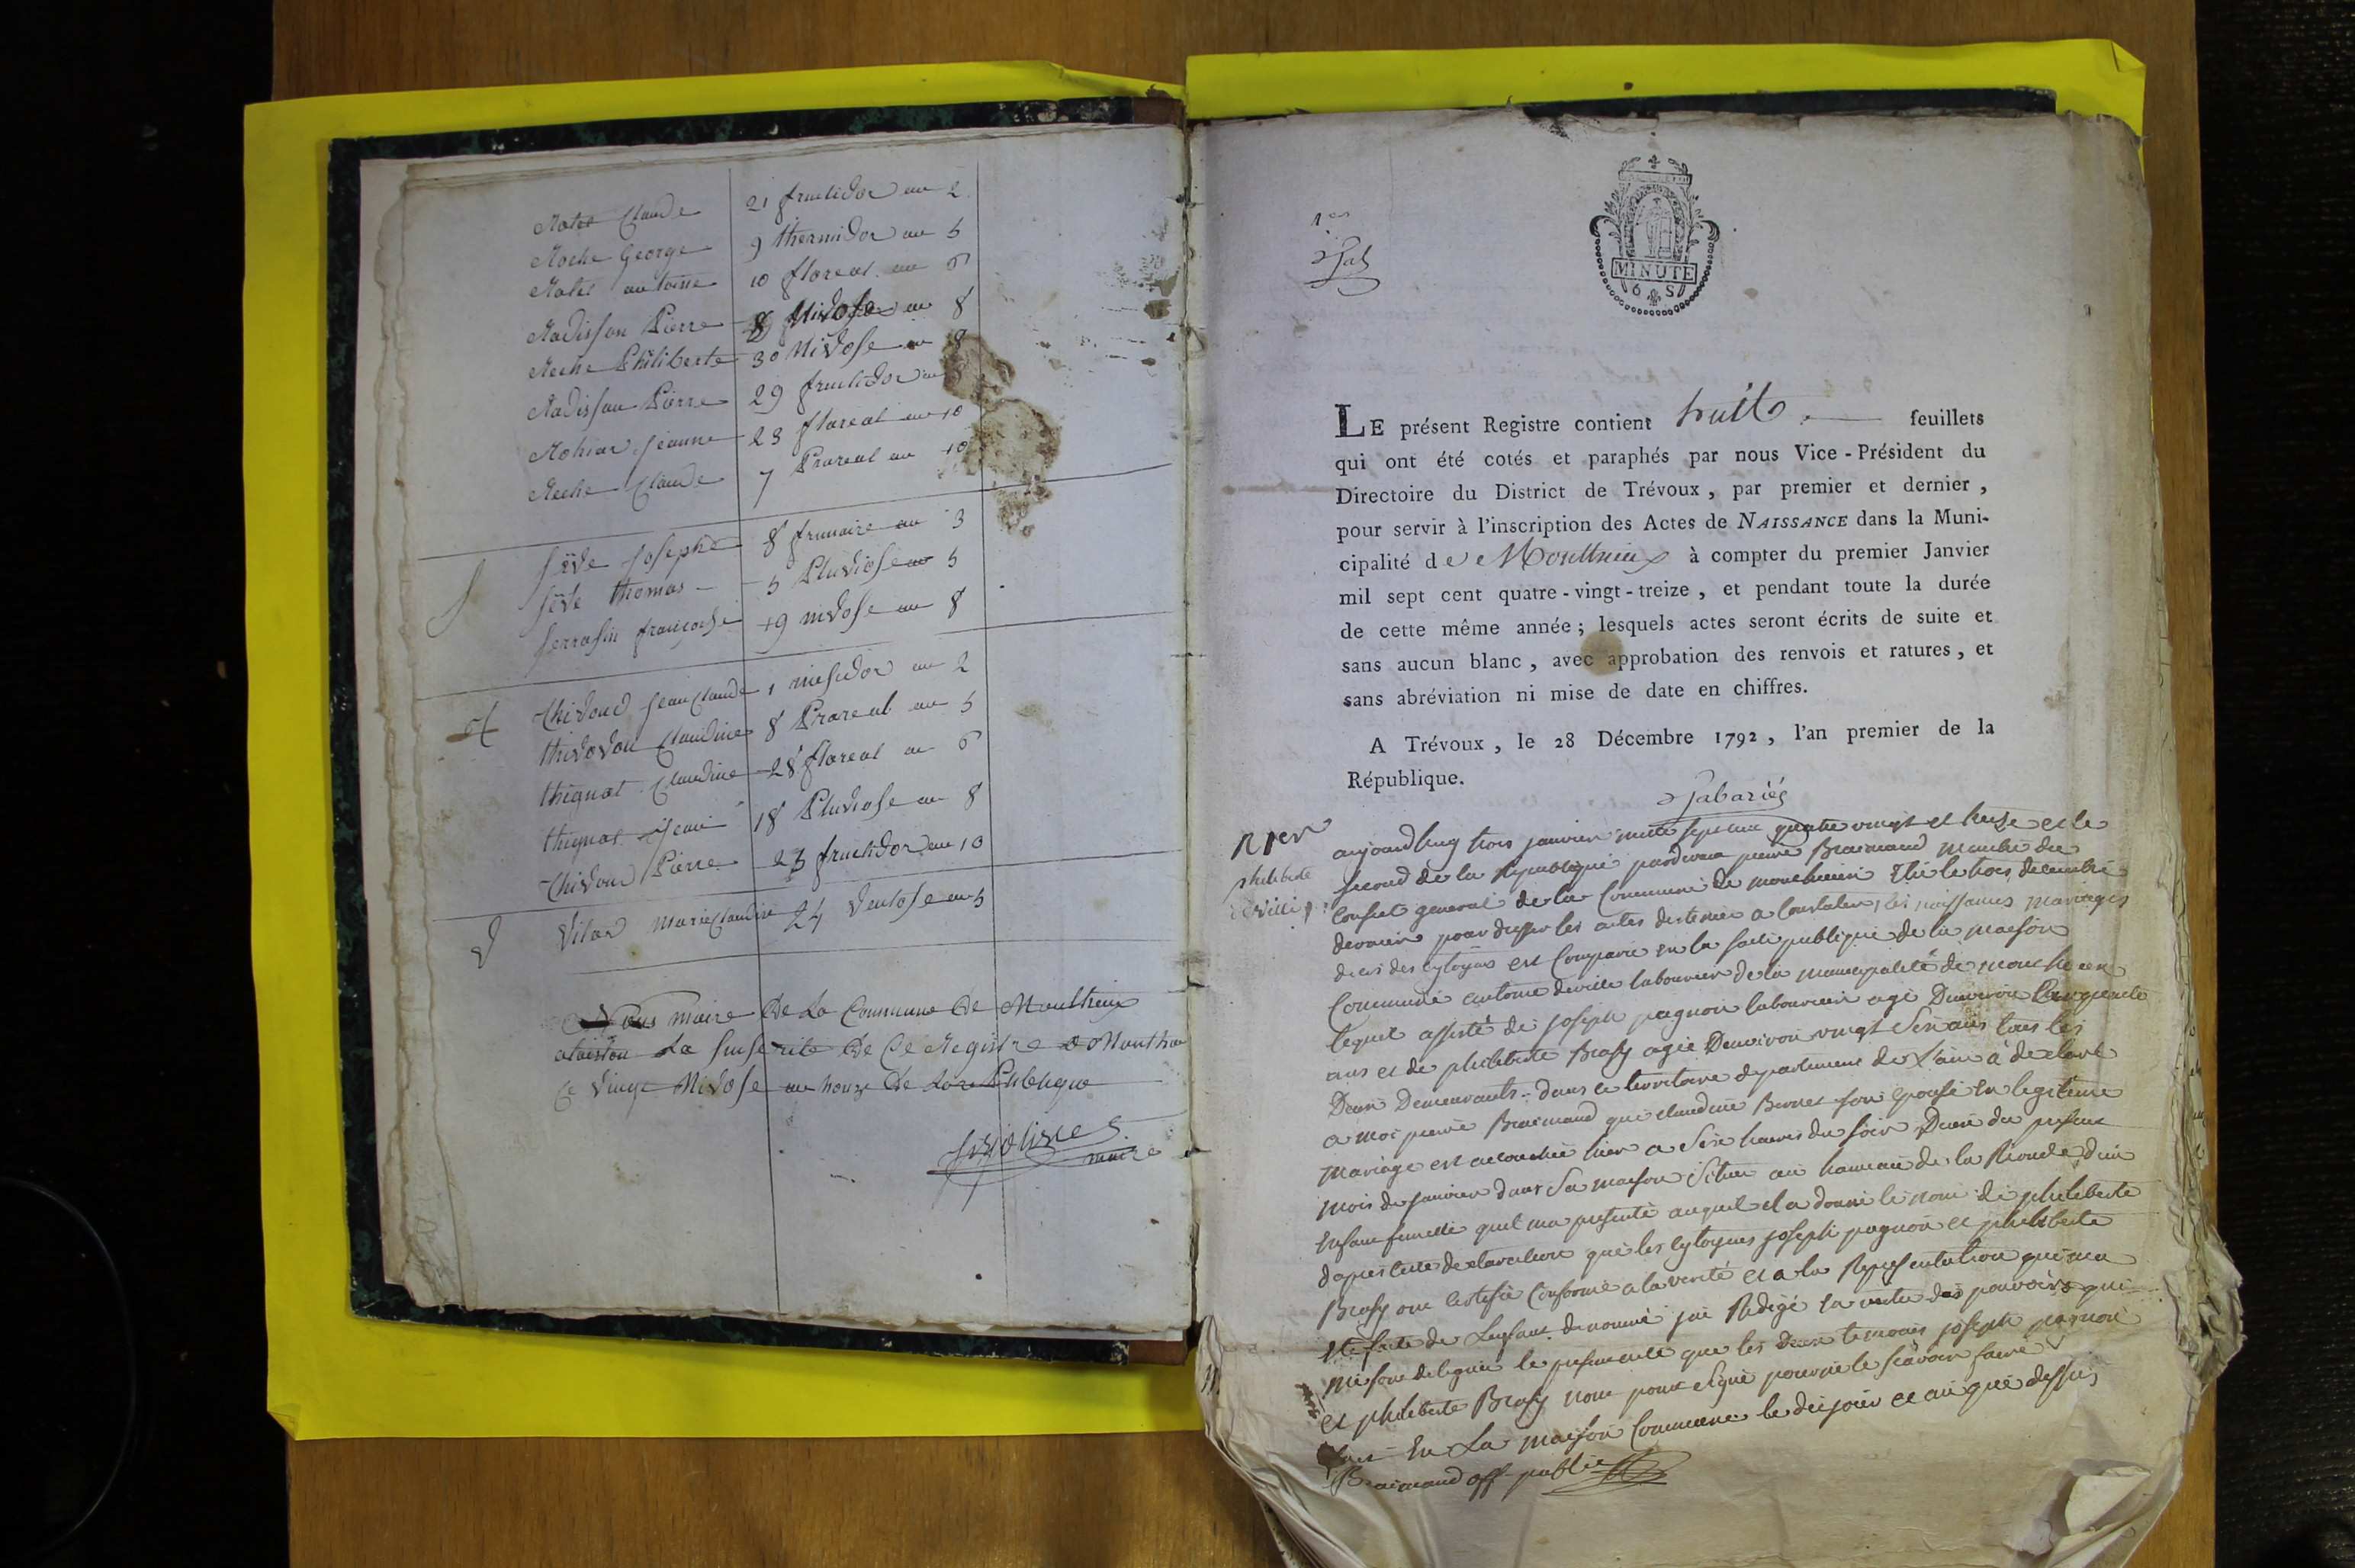 Claude 21 fructidor an 2
Roche George 9 thermidor an 5
antoine 10 floreal an 6
Radisson Pierre 8 Nivose an 8
Reche Philiberte 30 Nivose an 8
Radisson Pierre 29 fructidor an
Jeanne 23 floreal an 10
Reche Claude 7 Prareal an 10
S Séve Joseph 8 frimaire an 3
Séve thomas 5 Pluviose an 5
Serrasin francoise 19 nivose an 8
T Thivoud Jean Claude 1 mesidor an 2
Claudine 8 Prareal an 5
thignat Claudine 28 floreal an 6
thignat Jean 18 Pluviose an 8
Thivoud Pierre 23 fructidor an 10
V Vilard Marie Claudine 24 Ventose an 5
Nous maire De La Commune De Monthieux
La De Ce Registre a Monthieux
Ce Vingt Nivose an honze De La re Publique
maire
1er
MINUTE
6 S
LE présent Registre contient huit feuillets
qui ont été cotés et paraphés par nous Vice-Président du
Directoire du District de Trévoux, par premier et dernier,
pour servir à l'inscription des Actes de NAISSANCE dans la Muni-
cipalité de Monthieux à compter du premier Janvier
mil sept cent quatre-vingt-treize, et pendant toute la durée
de cette même année; lesquels actes seront écrits de suite et
sans aucun blanc, avec approbation des renvois et ratures, et
sans abréviation ni mise de date en chiffres.
A Trévoux, le 28 Décembre 1792, l'an premier de la
République.
Jabariés
philiberte
deville
aujourdhuy trois janvier mille sept cent quatre vingt et treize et le
second de la Republique pardevant pierre Braimaud membre du
Conseil general de la Commune de monthieux Elu le trois decembre
dernier pour dresser les actes destinés a Constater les naissances mariages
deces des cytoyens est Comparu en la salle publique de la maison
Commune antoine deville laboureur de la municipalité de monthieux
lequel assisté de joseph pagnon laboureur agé Denviron Cinquante
ans et de philiberte Brasy agée Denviron vingt Six ans tous les
Deux Demeurants dans ce territoire departement de L'ain à declaré
a moi pierre Braimaud que claudine Bernet son epouse en legitime
mariage est acouchée hier a Six heures du soir Deux du present
mois de janvier dans Sa maison Située au hameau de la Ronde d'un
Enfant femelle quil ma presenté auquel il a donné le nom de philiberte
dapres cette declaration que les cytoyens joseph pagnon et philiberte
Brasy ont certifié Conforme a la verité et a la Representation qui ma
eté faite de Lenfant denommé jai Redigé En vertu des pouvoirs qui
me sont delegués le present acte que les Deux temoins joseph pagnon
et philiberte Brasy nont point signé pour ne le scavoir faire
fait En La maison Commune le dit jour et an que dessus
Braimaud off public